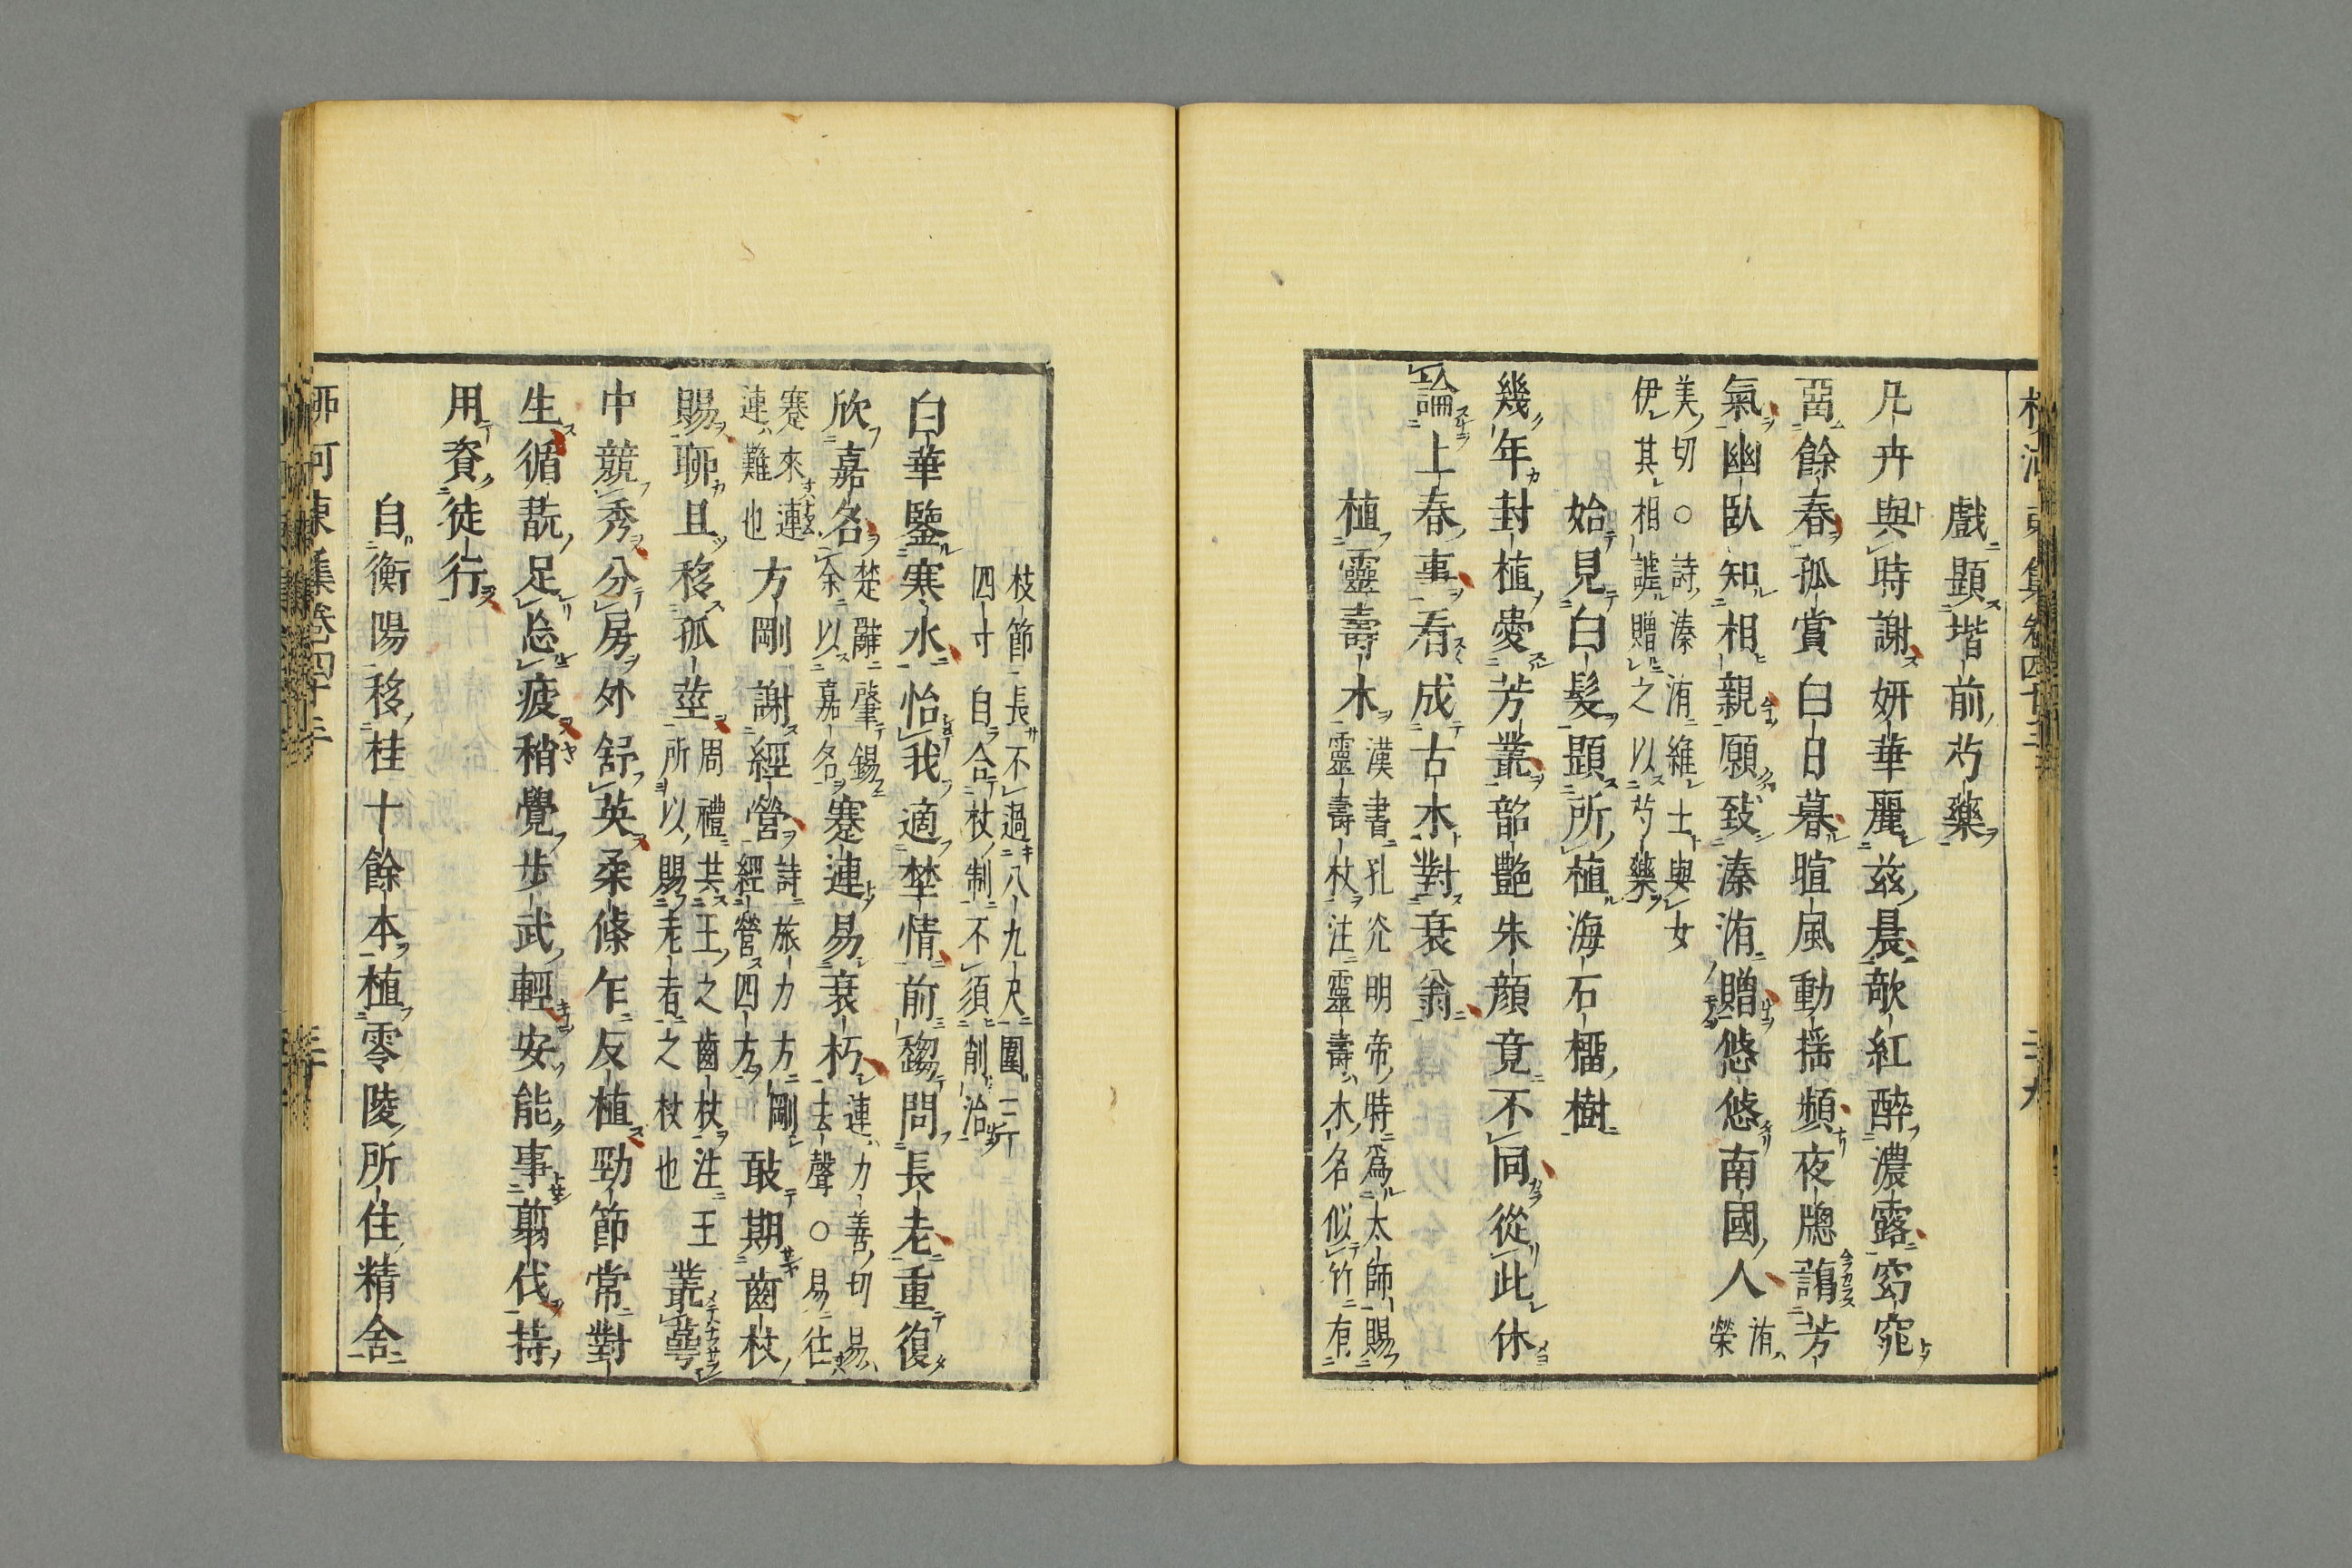 戲題堦前芍藥
凡卉與時謝妍華麗茲晨欹紅醉濃露窈窕
留餘春孤賞白日暮暄風動揺頻夜牕藹芳
氣幽臥知相親願致溱洧贈悠悠南國人洧榮
美切○詩溱洧維士與女
伊其相謔贈之以芍藥
始見白髮題所植海石橊樹
幾年封植愛芳叢韶艷朱顔竟不同從此休
論上春事看成古木對衰翁
植靈壽木漢書孔光明帝特為太師賜
靈壽杖注靈壽木名似竹有
枝節長不過八九尺圍三四寸自合杖制不須削治
白華鑒寒水怡我適埜情前趨問長老重復
欣嘉名楚辭肇錫余以嘉名蹇連易衰朽連力善切易去聲○易往
蹇來連連難也方剛謝經營詩旅力方剛經營四方敢期齒杖
賜聊且移孤莖周禮共王之齒杖注王所以賜老者之杖也叢萼
中競秀分房外舒英柔條乍反植勁節常對
生循翫足忘疲稍覺步武輕安能事翦伐持
用資徒行
自衡陽移桂十餘本植零陵所住精舍
柳河東集卷四十三
三十